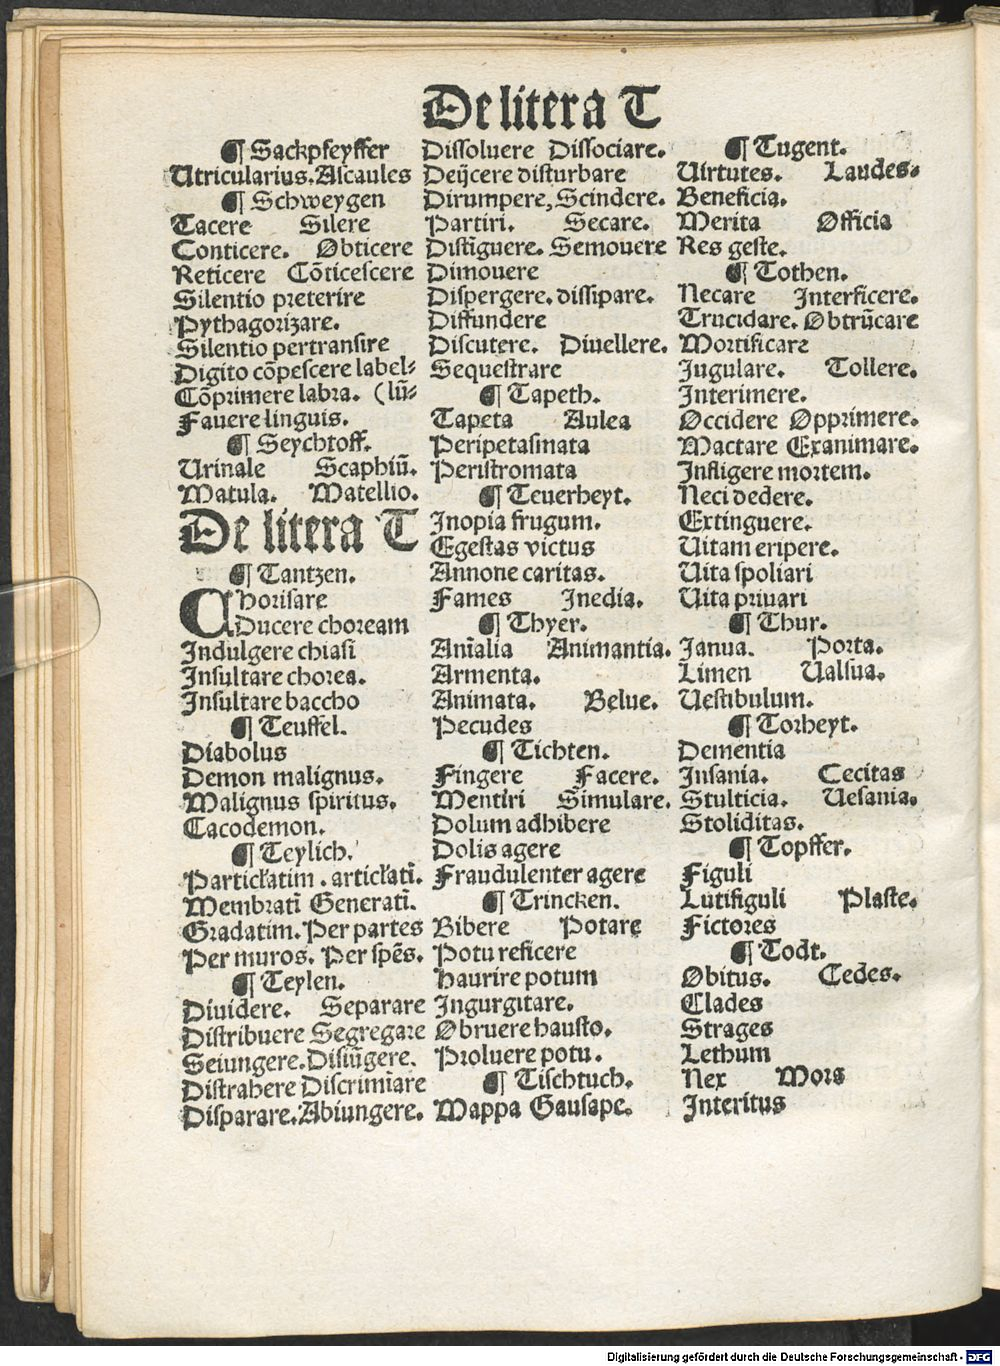 De litera T
¶ Sackpfeyffer
Utricularius. Ascaules
¶ Schweygen
Tacere Silere
Conticere. Obticere
Reticere Cōticescere
Silentio preterire
Pythagorizare.
Silentio pertransire
Digito cōpescere label⸗
Cōprimere labra. (lū⸗
Fauere linguis.
¶ Seychtoff.
Urinale Scaphiū.
Matula. Matellio.
De litera T
¶ Tantzen.
Chorisare
Ducere choream
Indulgere chiasi
Insultare chorea.
Insultare baccho
¶ Teuffel.
Diabolus
Demon malignus.
Malignus spiritus.
Cacodemon.
¶ Teylich.
Particłatim. articłatī.
Membratī Generatī.
Gradatim. Per partes
Per muros. Per spēs.
¶ Teylen.
Diuidere. Separare
Distribuere Segregare
Seiungere. Disiūgere.
Distrahere Discrimīare
Disparare. Abiungere.
Dissoluere Dissociare.
Deijcere disturbare
Dirumpere, Scindere.
Partiri. Secare.
Distīguere. Semouere
Dimouere
Dispergere. dissipare.
Diffundere
Discutere. Diuellere.
Sequestrare
¶ Tapeth.
Tapeta Aulea
Peripetasmata
Peristromata
¶ Teuerheyt.
Inopia frugum.
Egestas victus
Annone caritas.
Fames Inedia.
¶ Thyer.
Anīalia Animantia.
Armenta.
Animata. Belue.
Pecudes
¶ Tichten.
Fingere Facere.
Mentiri Simulare.
Dolum adhibere
Dolis agere
Fraudulenter agere
¶ Trincken.
Bibere Potare
Potu reficere
Haurire potum
Ingurgitare.
Obruere hausto.
Proluere potu.
¶ Tischtuch.
Mappa Gausape.
¶ Tugent.
Uirtutes. Laudes.
Beneficia.
Merita Officia
Res geste.
¶ Tothen.
Necare Interficere.
Trucidare. Obtrūcare
Mortificare
Jugulare. Tollere.
Interimere.
Occidere Opprimere.
Mactare Exanimare.
Infligere mortem.
Neci dedere.
Extinguere.
Uitam eripere.
Uita spoliari
Uita priuari
¶ Thur.
Janua. Porta.
Limen Ualsua.
Uestibulum.
¶ Torheyt.
Dementia
Insania. Cecitas
Stulticia. Uesania.
Stoliditas.
¶ Topffer.
Figuli
Lutifiguli Plaste.
Fictores
¶ Todt.
Obitus. Cedes.
Clades
Strages
Lethum
Nex Mors
Interitus
Digitalisierung gefördert durch die Deutsche Forschungsgemeinschaft - DFG